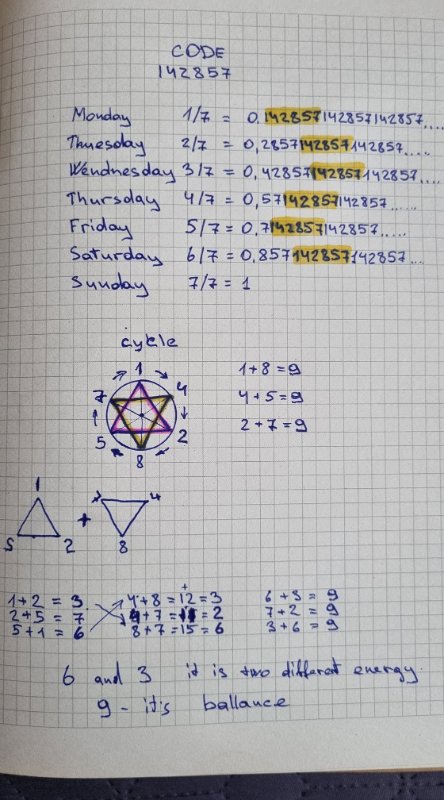 CODE
142857
Monday 1/7 = 0.142857142857142857....
Thuesday 2/7 = 0,2857142857142857....
Wendnesday 3/7 = 0,42857142857142857....
Thursday 4/7 = 0,57142857142857.....
Friday 5/7 = 0,7142857142857.....
Saturday 6/7 = 0,857142857142857...
Sunday 7/7 = 1
cycle
1
7 4
5 2
8
1+8=9
4+5=9
2+7=9
1
5 2
+
4
8
1+2 = 3 4+8=12=3 6+3 = 9
2+5 = 7 +7= =2 7+2 = 9
5+1 = 6 8+7=15=6 3+6 = 9
6 and 3 it is two different energy.
9 - it's ballance